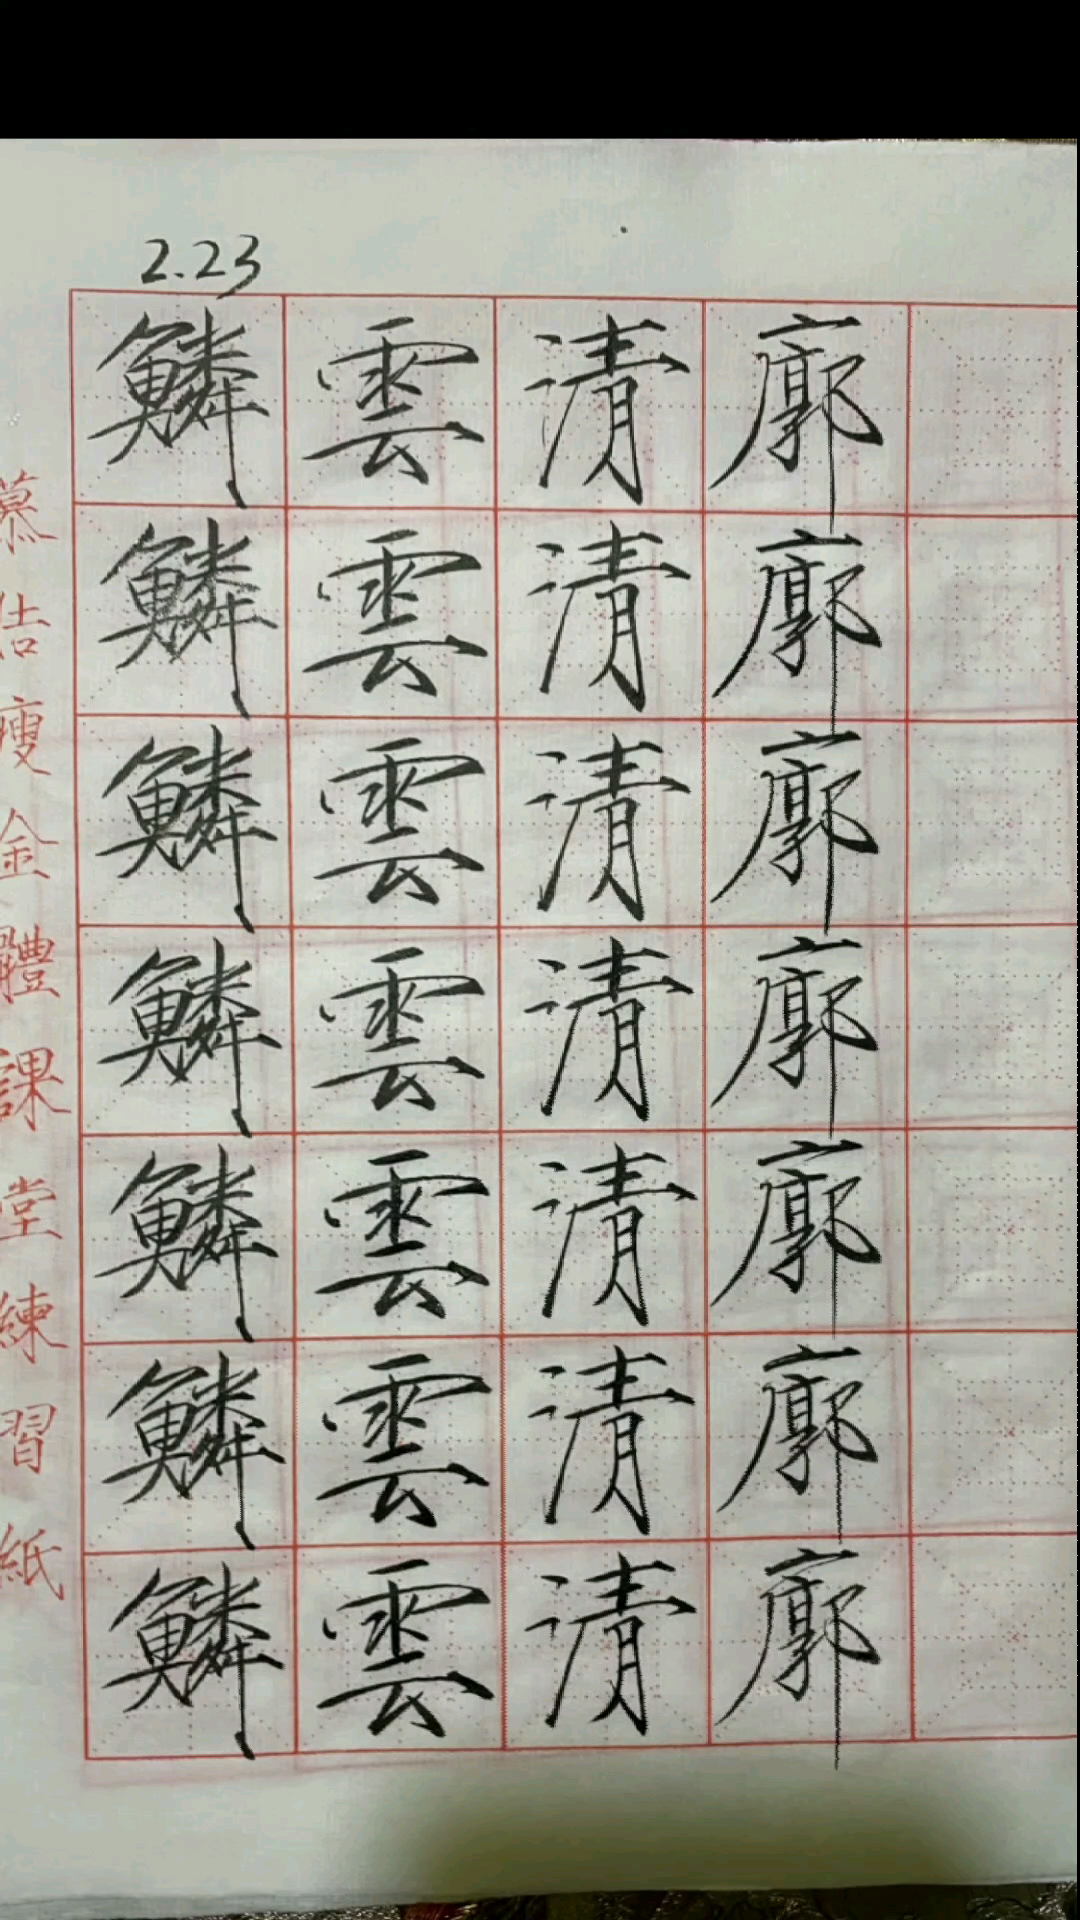 2.23
鱗 雲 清 廓
鱗 雲 清 廓
鱗 雲 清 廓
鱗 雲 清 廓
鱗 雲 清 廓
鱗 雲 清 廓
鱗 雲 清 廓
慕佶瘦金體課堂練習紙